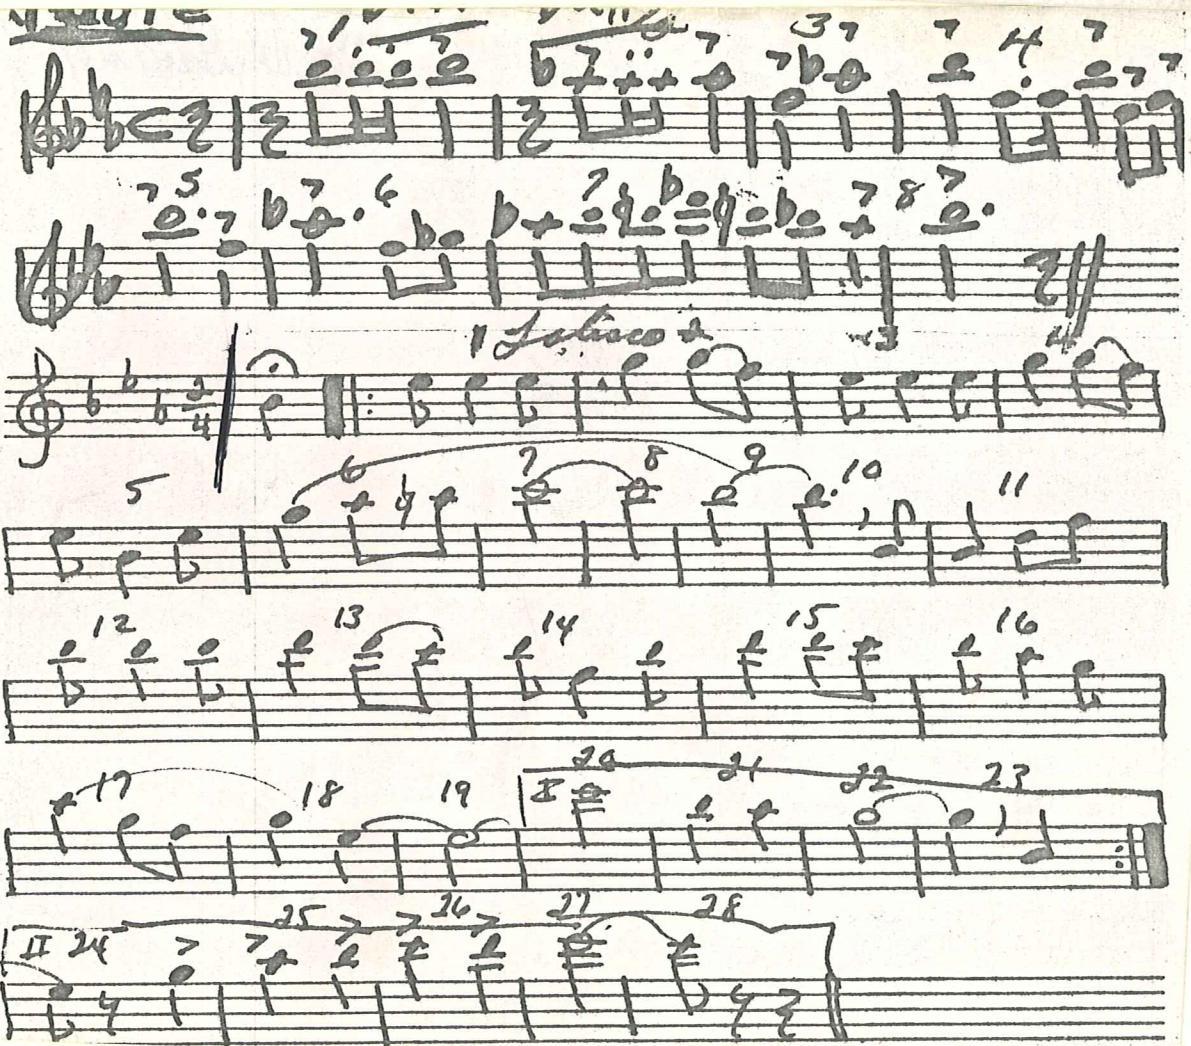 1
3
4
5
6
8
Jalisco
3
4
2
4
5
6
7
8
9
10
11
12
13
14
15
16
17
18
19
I
20
21
22
23
II
24
25
26
27
28